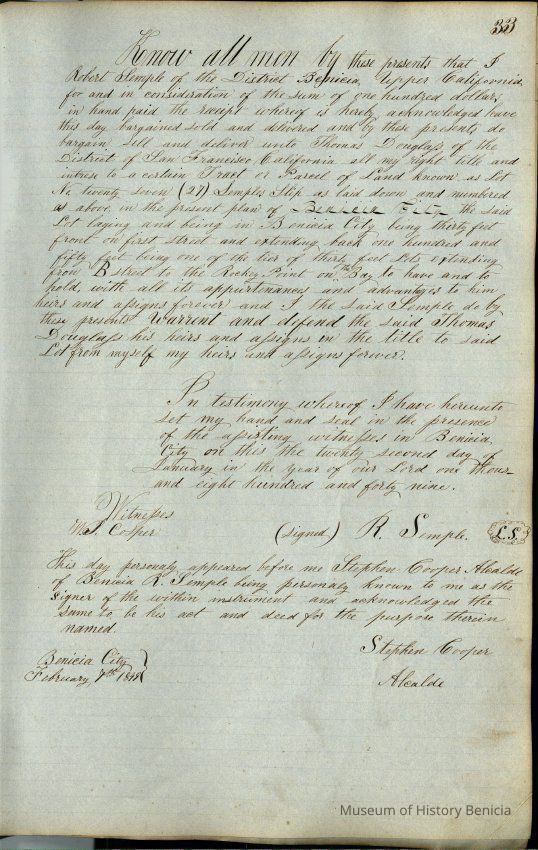 33
Know all men by these presents that I
Robert Semple of the District Benicia, Upper California
for and in consideration of the sum of one hundred dollars
in hand paid the receipt whereof is hereby acknowledged have
this day bargained sold and delivered and by these presents do
bargain, sell and deliver unto Thomas Douglass of the
District of San Francisco California all my right title and
intrest to a certain Tract or Parcel of Land known as Lot
No twenty seven (27) Semples Slip as laid down and numbered
as above in the present plan of Benicia City the said
Lot laying and being in Benicia City being thirty feet
front on first street and extending back one hundred and
fifty feet being one of the tier of thirty feet Lots extending
from B street to the Rocky Point on the Bay to have and to
hold, with all its appurtenances and advantages to him
heirs and assigns forever and I the said Semple do by
these presents Warrent and defend the said Thomas
Douglass his heirs and assigns in the title to said
Lot from myself my heirs and assigns forever.
In testimony whereof I have hereunto
set my hand and seal in the presence
of the assisting witnesses in Benicia
City on this the twenty second day of
January in the year of our Lord one thous-
and eight hundred and forty nine.
Witnesses
Cooper (signed) R. Semple. L.S.
This day personaly appeared before me Stephen Cooper Alcalde
of Benicia R. Semple being personaly known to me as the
signer of the within instrument and acknowledged the
same to be his act and deed for the purpose therein
named.
Stephen Cooper
Benicia City
February 7th 1849 Alcalde
Museum of History Benicia